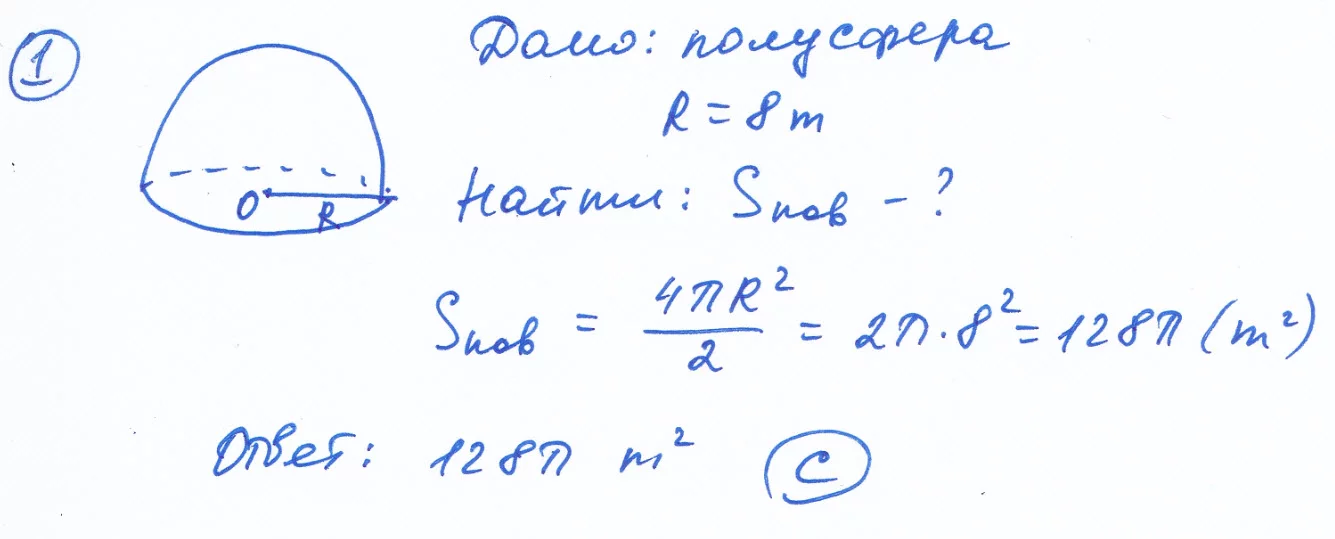 1
Дано: полусфера
R = 8 m
O R
Найти: Sпов - ?
Sпов = 4πR²/2 = 2π·8² = 128π (m²)
Ответ: 128π m² C